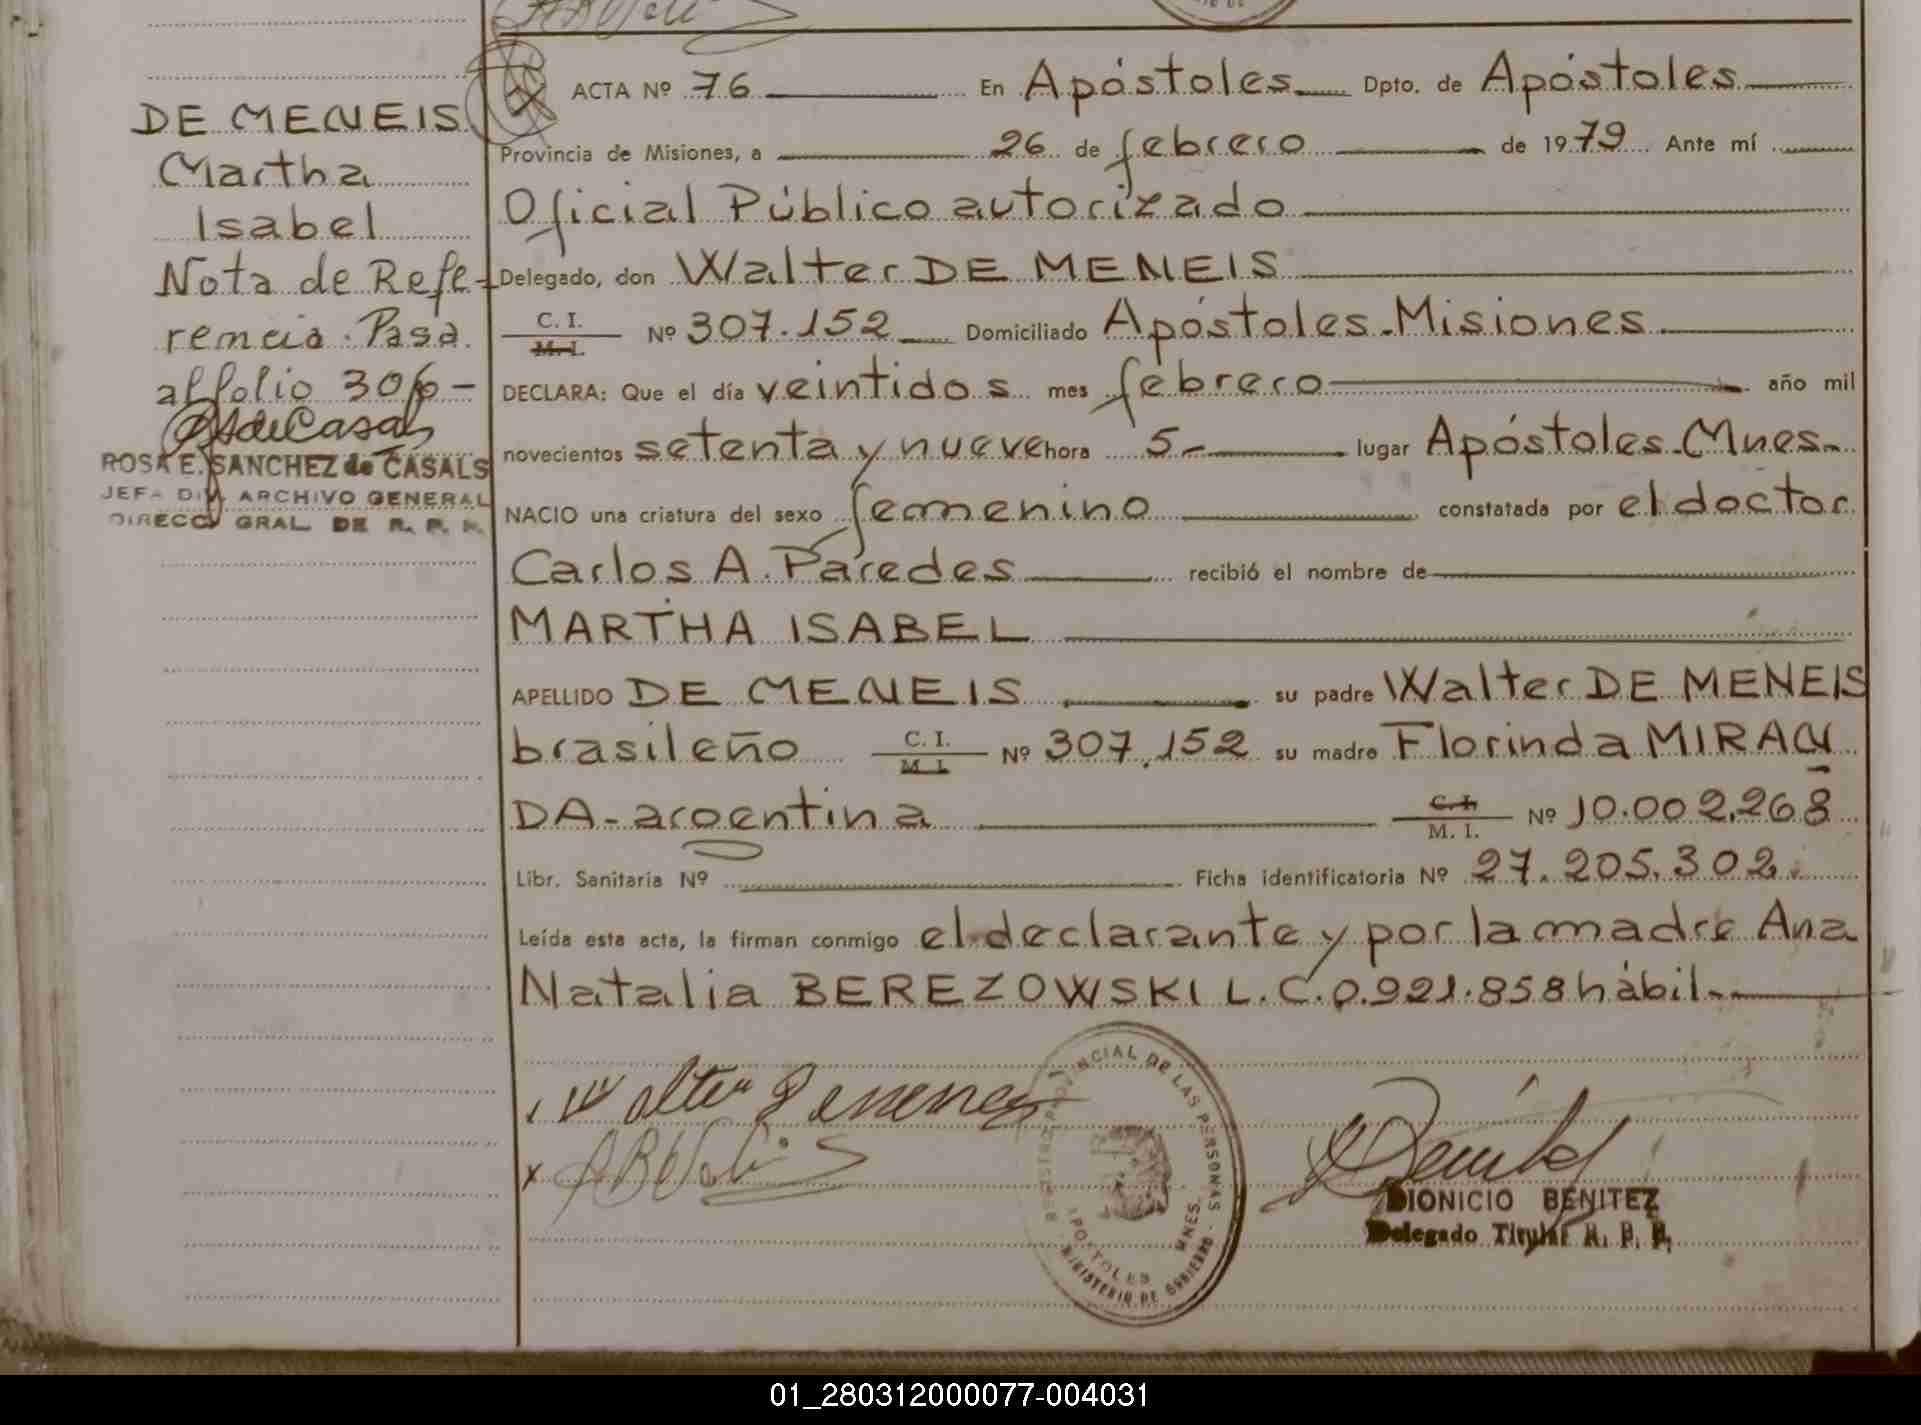 DE MENEIS
Martha
Isabel
Nota de Refe-
rencia. Pasa
al folio 306-
ROSA E. SANCHEZ de CASALS
JEFA DIV. ARCHIVO GENERAL
DIRECC. GRAL. DE R. P. P.
ACTA Nº 76 En Apóstoles Dpto. de Apóstoles
Provincia de Misiones, a 26 de febrero de 1979 Ante mí
Oficial Público autorizado
Delegado, don Walter DE MENEIS
C. I.
M. I. Nº 307.152 Domiciliado Apóstoles-Misiones
DECLARA: Que el día veintidos mes febrero año mil
novecientos setenta y nueve hora 5.- lugar Apóstoles-Mnes-
NACIO una criatura del sexo femenino constatada por el doctor
Carlos A. Paredes recibió el nombre de
MARTHA ISABEL
APELLIDO DE MENEIS su padre Walter DE MENEIS
brasileño C. I.
M. I. Nº 307.152 su madre Florinda MIRAN
DA-argentina C. I.
M. I. Nº 10.002.268
Libr. Sanitaria Nº Ficha identificatoria Nº 27.205.302.
Leída esta acta, la firman conmigo el declarante y por la madre Ana
Natalia BEREZOWSKI L.C.0.921.858 hábil.-
Walter Demeneis
REGISTRO PROVINCIAL DE LAS PERSONAS
APOSTOLES MNES.
MINISTERIO DE GOBIERNO
DIONICIO BENITEZ
Delegado Titular R. P. P.
01_280312000077-004031